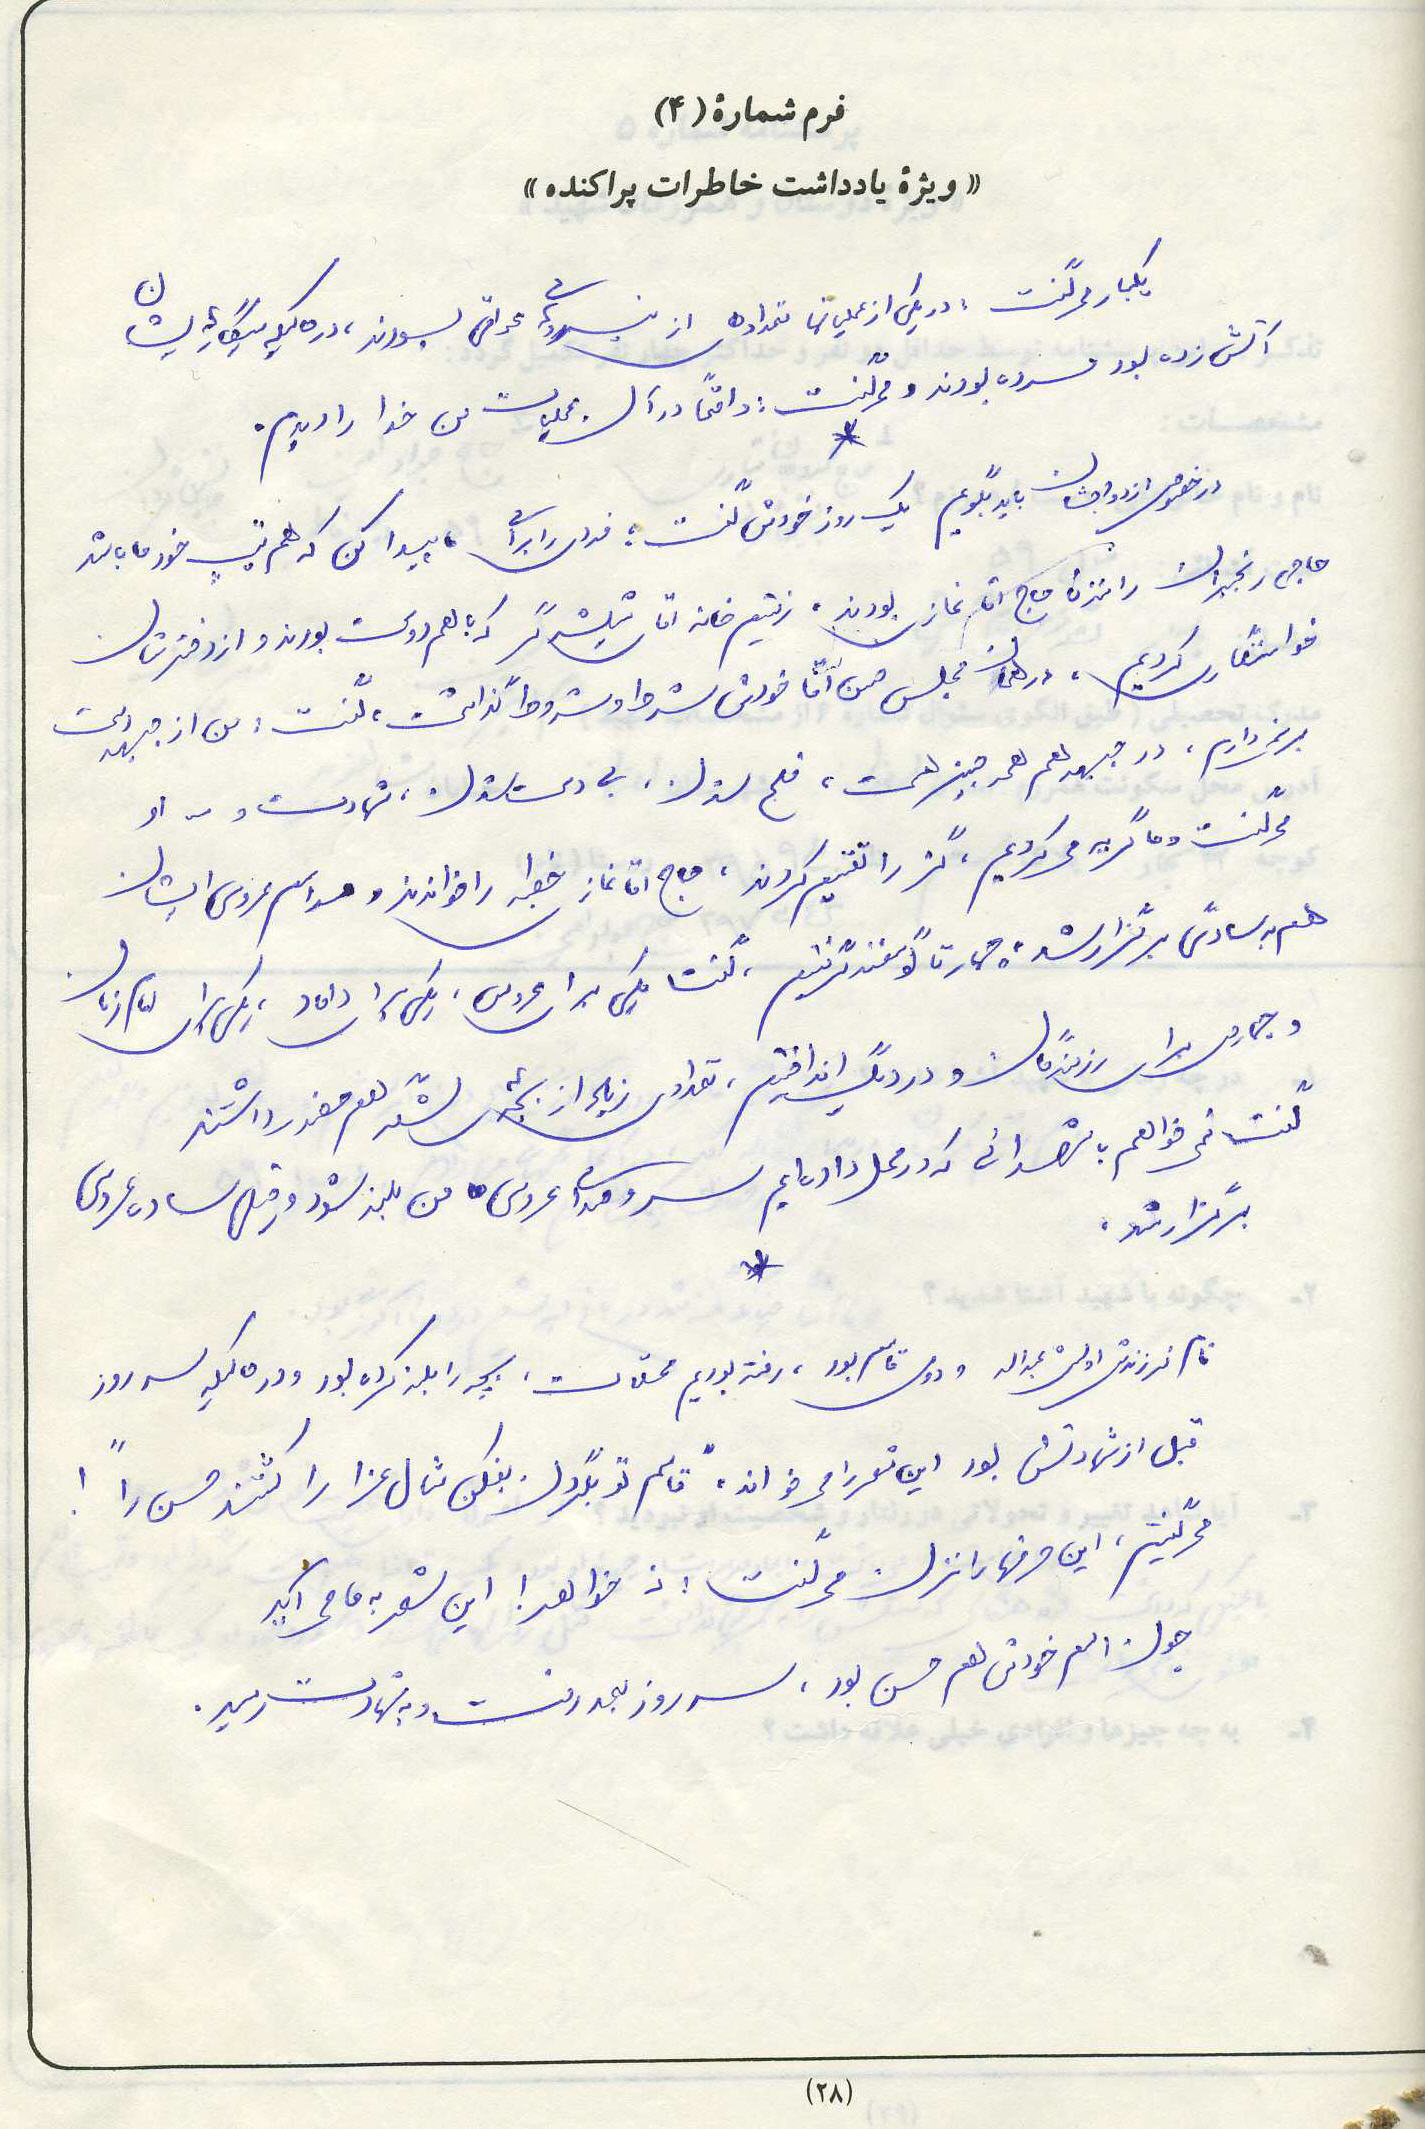 فرم شمارهٔ (۴)
« ویژهٔ یادداشت خاطرات پراکنده »
یکبار می‌گفت : در یکی از عملیاتها تعدادی از نیروهای عراقی بودند ، در حالیکه سیگار لبشان
آتش زده بود مرده بودند و می‌گفت : واقعاً در آن عملیات من خدا را دیدم .
*
در خصوص ازدواجشان باید بگویم یک روز خودش گفت : فردی را برای ما پیدا کن که هم تیپ خود ما باشد
حاجی رنجبران رانندهٔ حاج آقا نمازی بودند ، رفتیم خانه آقای که با هم دوست بودند و از دخترشان
خواستگاری کردیم ، در همان مجلس حسن آقا خودش شرط و شروط گذاشت ، گفت : من از جبهه دست
برنمی‌دارم ، در جبهه هم همه چیز هست ، فلج شدن ، بی دست شدن ، شهادت و ... او
می‌گفت و ما گریه می‌کردیم ، گز را تقسیم کردند ، حاج آقا نمازی خطبه را خواندند و مراسم عروسی ایشان
هم به سادگی برگزار شد ، چهار تا گوسفند گرفتیم ، گفت یکی برای عروس ، یکی برای داماد ، یکی برای امام زمان
و چهارمی برای رزمندگان و در دیگ انداختیم ، تعدادی زیاد از بچه‌های لشکر هم حضور داشتند
گفت نمی خواهم با شهدائی که در محل داده‌ایم سر و صدای عروسی من بلند شود و خیلی ساده عروسی
برگزار شد .
*
نام فرزندش اولش عبداله و دومی قاسم بود ، رفته بودیم محلات ، بچه را بلند کرده بود و در حالیکه سه روز
قبل از شهادتش بود این شعر را می خواند ، " قاسم تو بگردن بفکن شال عزا را کشتند حسن را " !
می‌گفتیم ، این حرفها را نزن می‌گفت : نه خواهر ! این شعر به ما می آید
چون اسم خودش هم حسن بود ، سه روز بعد رفت و به شهادت رسید .
(۲۸)